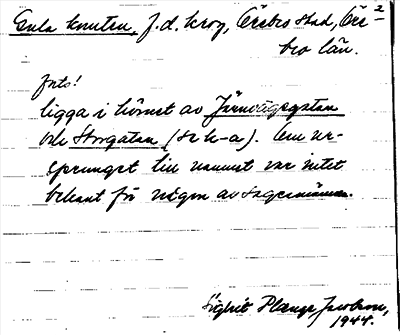 2
Gula knuten, f.d. krog, Örebro stad, Öre-
bro län.
Forts!
ligga i hörnet av Järnvägsgatan
och Storgatan (se k-a). Om ur-
sprunget till namnet var intet
bekant för någon av sagesmännen.
Sigbrit Plænge Jacobson,
1944.